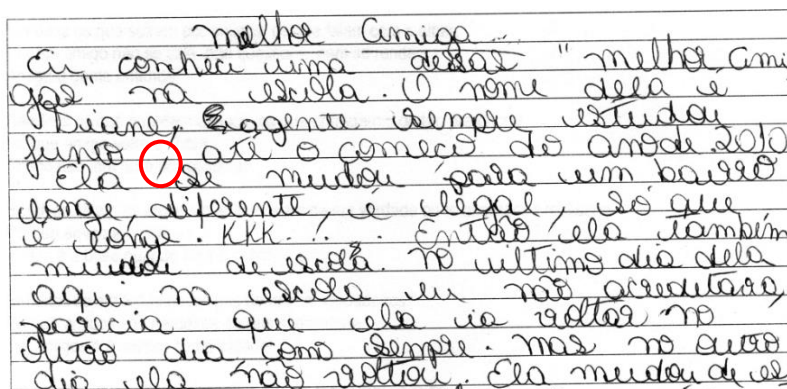 melhor amiga...
Ei conheci uma dessas "melhor ami
gas" na escola. O nome dela é
Diane, agente sempre estudou
junto, até o começo do ano de 2010
Ela se mudou para um bairro
longe, diferente, é legal, só que
é longe. KKK... Então ela também
mudou de escola. no ultimo dia dela
aqui na escola eu não acreditava,
parecia que ela ia voltar no
outro dia como sempre. mas no outro
dia ela não voltou. Ela mudou de es